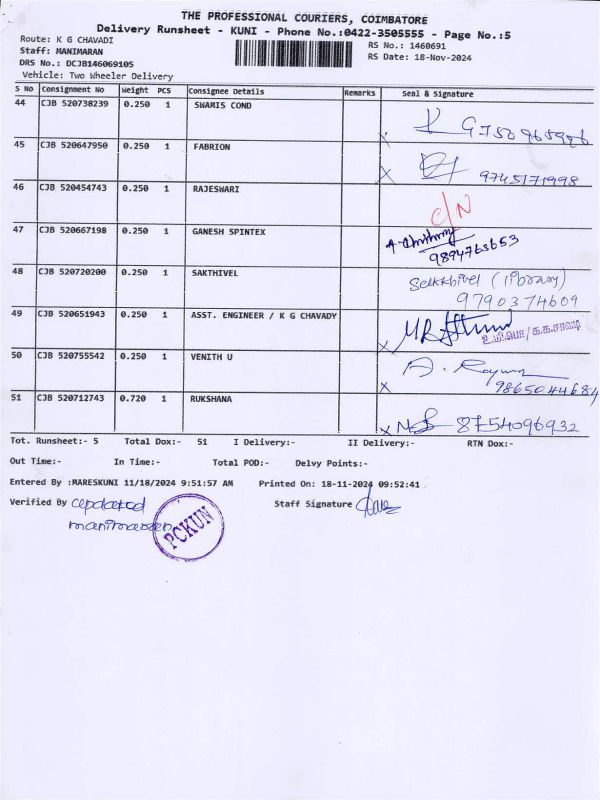 THE PROFESSIONAL COURIERS, COIMBATORE
Delivery Runsheet - KUNI - Phone No.:0422-3505555 - Page No.:5
Route: K G CHAVADI
RS No.: 1460691
Staff: MANIMARAN
RS Date: 18-Nov-2024
DRS No.: DCJB146069105
Vehicle: Two Wheeler Delivery
S No Consignment No Weight PCS Consignee Details Remarks Seal & Signature
44 CJB 520738239 0.250 1 SWAMIS COND
45 CJB 520647950 0.250 1 FABRION 9745171998
46 CJB 520454743 0.250 1 RAJESWARI C/N
47 CJB 520667198 0.250 1 GANESH SPINTEX
9894763653
48 CJB 520720200 0.250 1 SAKTHIVEL (library)
9790374609
49 CJB 520651943 0.250 1 ASST. ENGINEER / K G CHAVADY
50 CJB 520755542 0.250 1 VENITH U
9865044684
51 CJB 520712743 0.720 1 RUKSHANA 8754096932
Tot. Runsheet:- 5 Total Dox:- 51 I Delivery:- II Delivery:- RTN Dox:-
Out Time:- In Time:- Total POD:- Delvy Points:-
Entered By :MARESKUNI 11/18/2024 9:51:57 AM Printed On: 18-11-2024 09:52:41
Verified By updated Staff Signature
manimaran
PCKUN